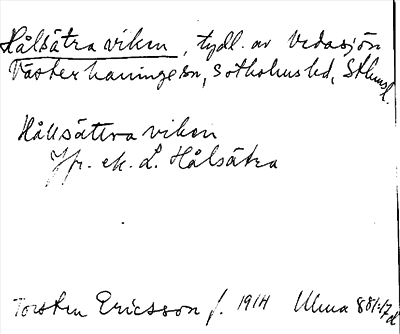 Hålsätra viken, tydl. av Vedasjön
Västerhaninge sn, Sotholms hd, Sthmsl.
Hållsättra viken
Jfr. ek. L. Hålsätra
Torsten Ericsson f. 1914 Ulma 881:17